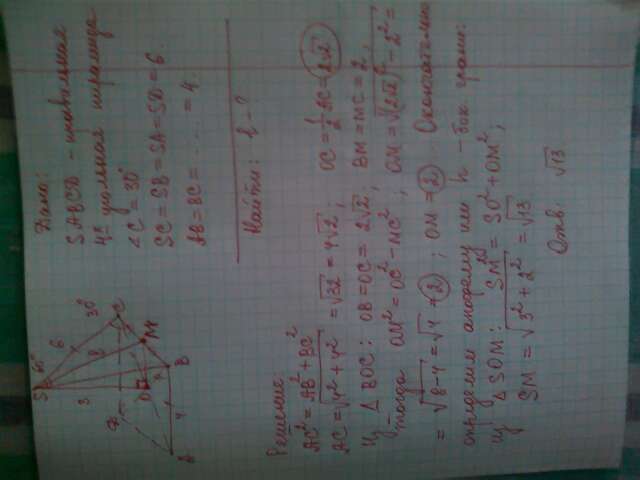 Дано:
SABCD - правильная
4х угольная пирамида
∠C = 30°
SC = SB = SA = SD = 6
AB = BC = ..... = 4.
Найти: h - ?
S
60°
6
30°
C
8
3
M
D
O
B
4
A
Решение:
AC² = AB² + BC²
AC = √4² + 4² = √32 = 4√2; OC = ½ AC = 2√2
Из Δ BOC: OB = OC = 2√2; BM = MC = 2,
тогда OM² = OC² - MC²; OM = √(2√2)² - 2² =
= √8-4 = √4 = 2; OM = 2 Окончательно
определим апофему или h - бок. грани:
из Δ SOM: SM² = SO² + OM²;
SM = √3² + 2² = √13
Отв: √13